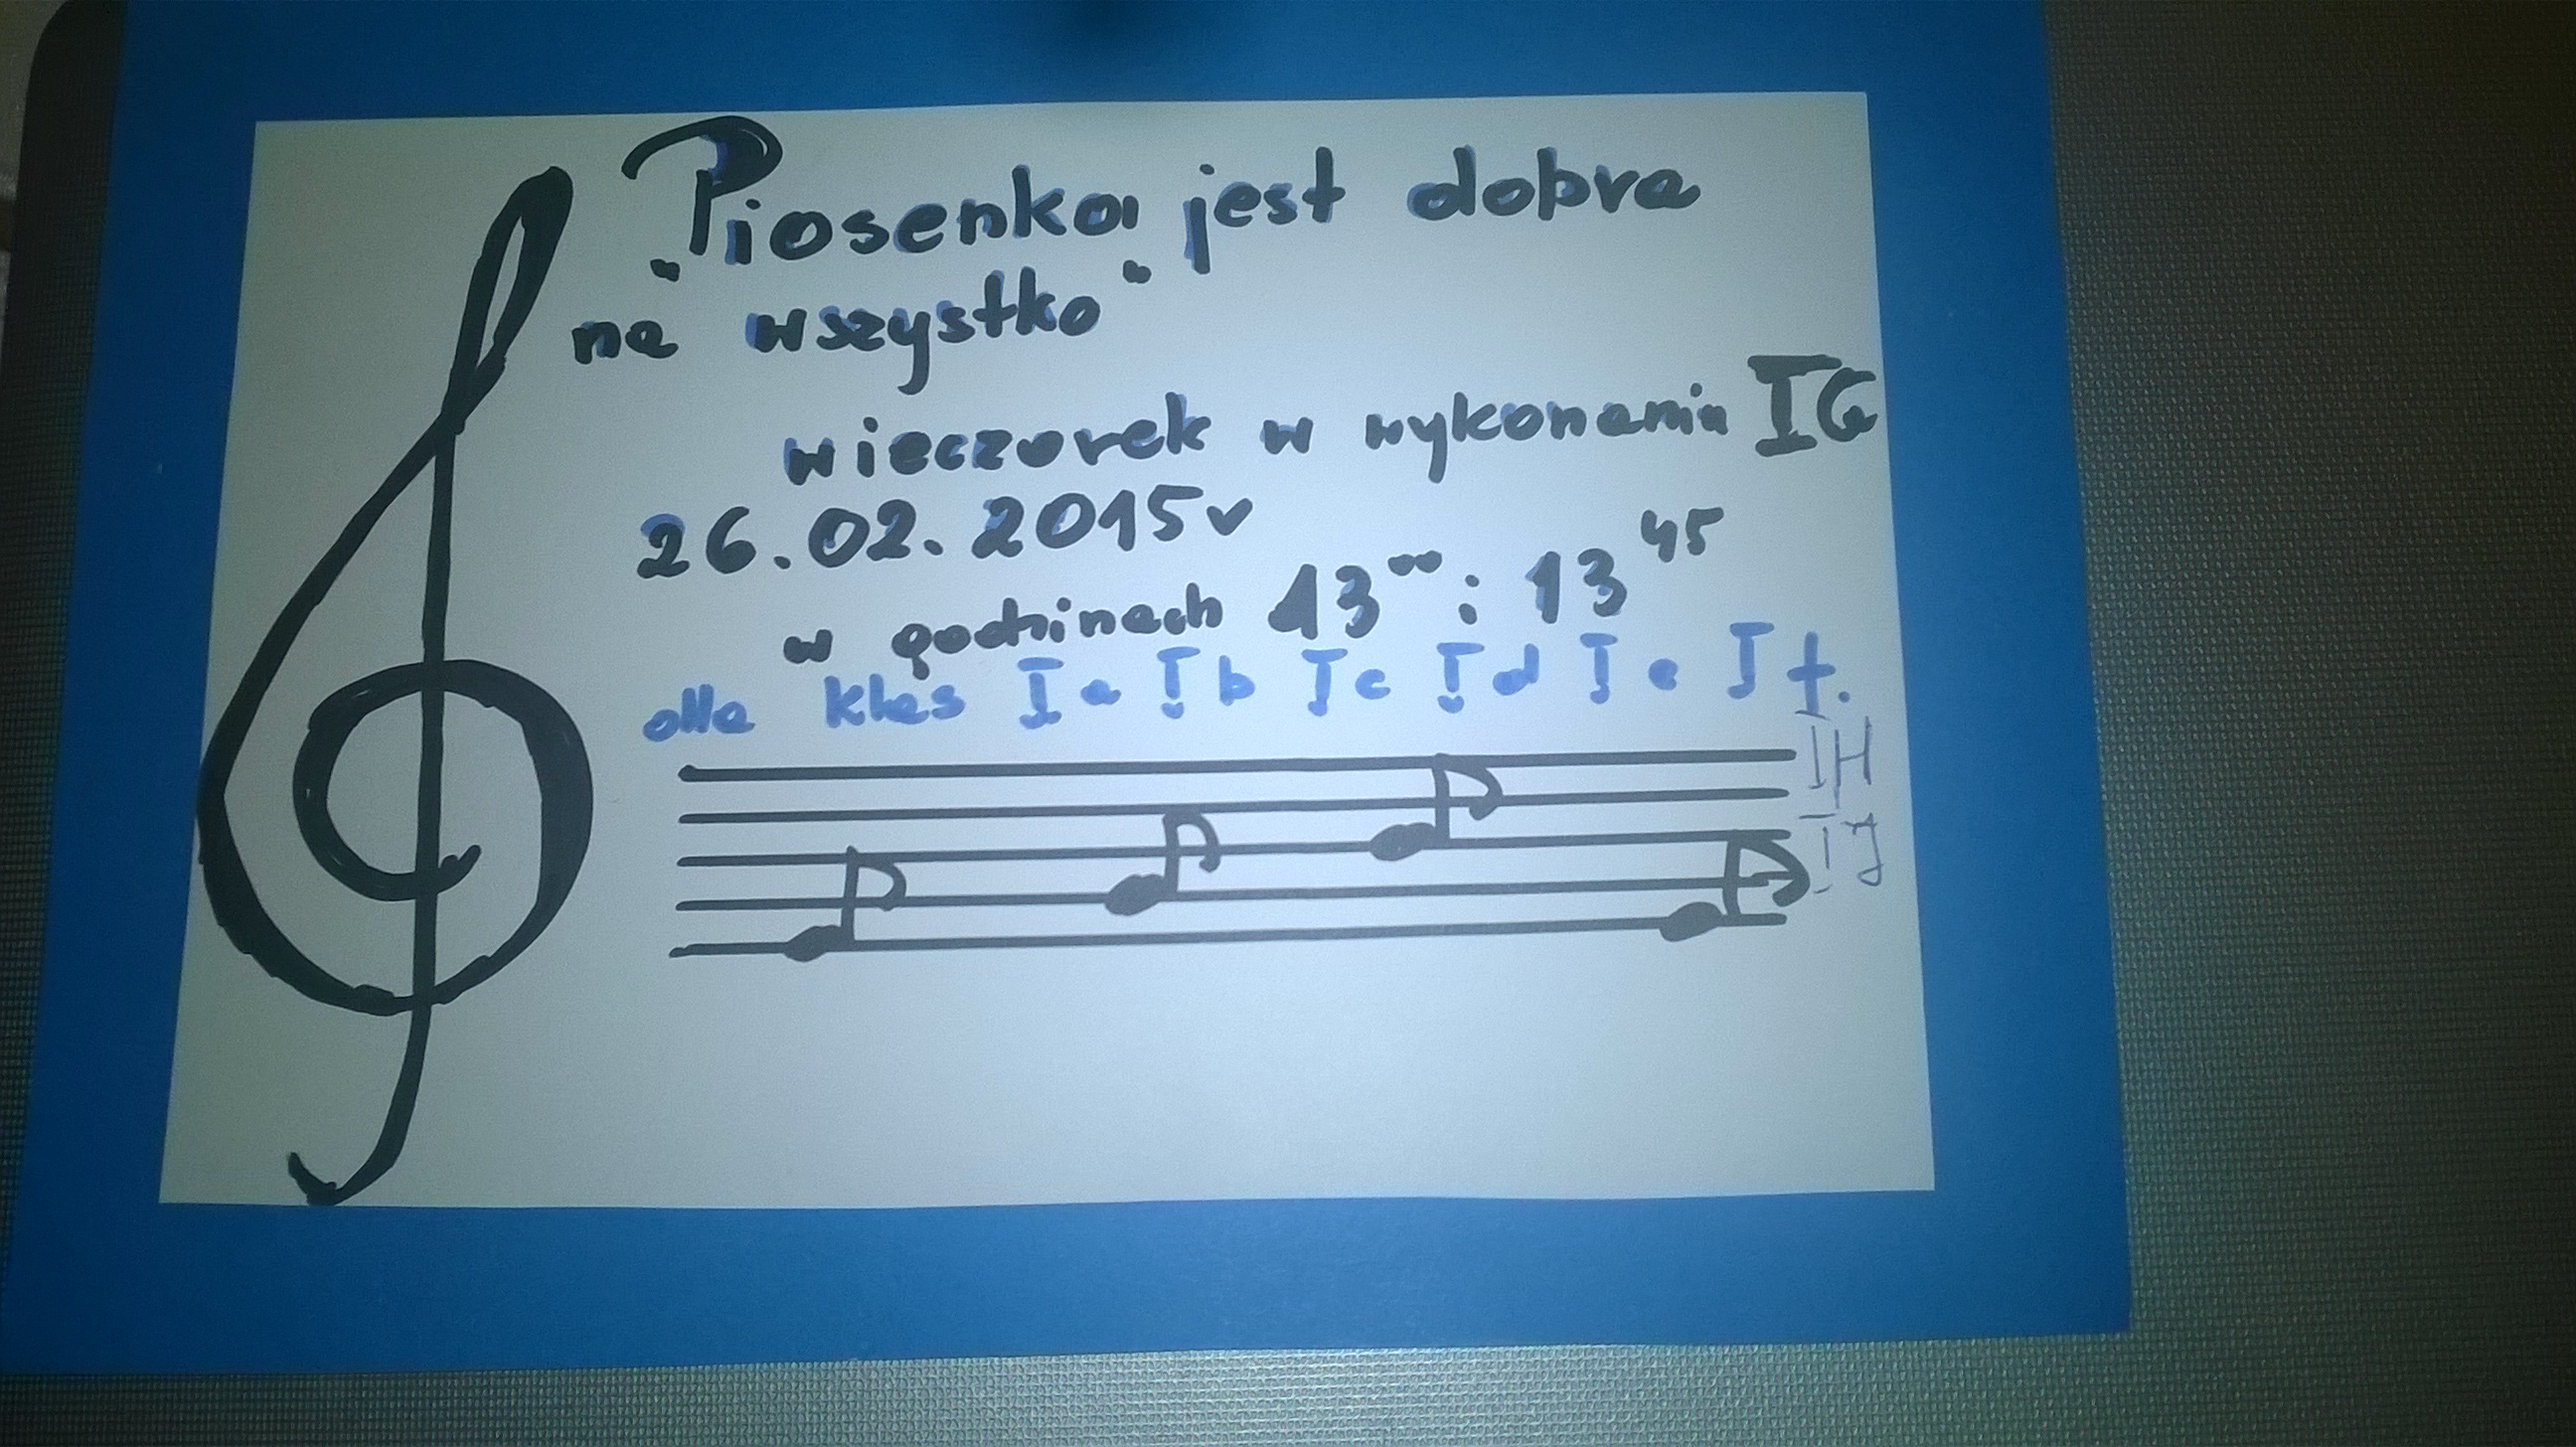 "Piosenka jest dobra
na wszystko"
wieczorek w wykonaniu IG
26.02.2015r
w godzinach 13⁰⁰ i 13⁴⁵
dla klas Ia Ib Ic Id Ie If.
IH
IJ